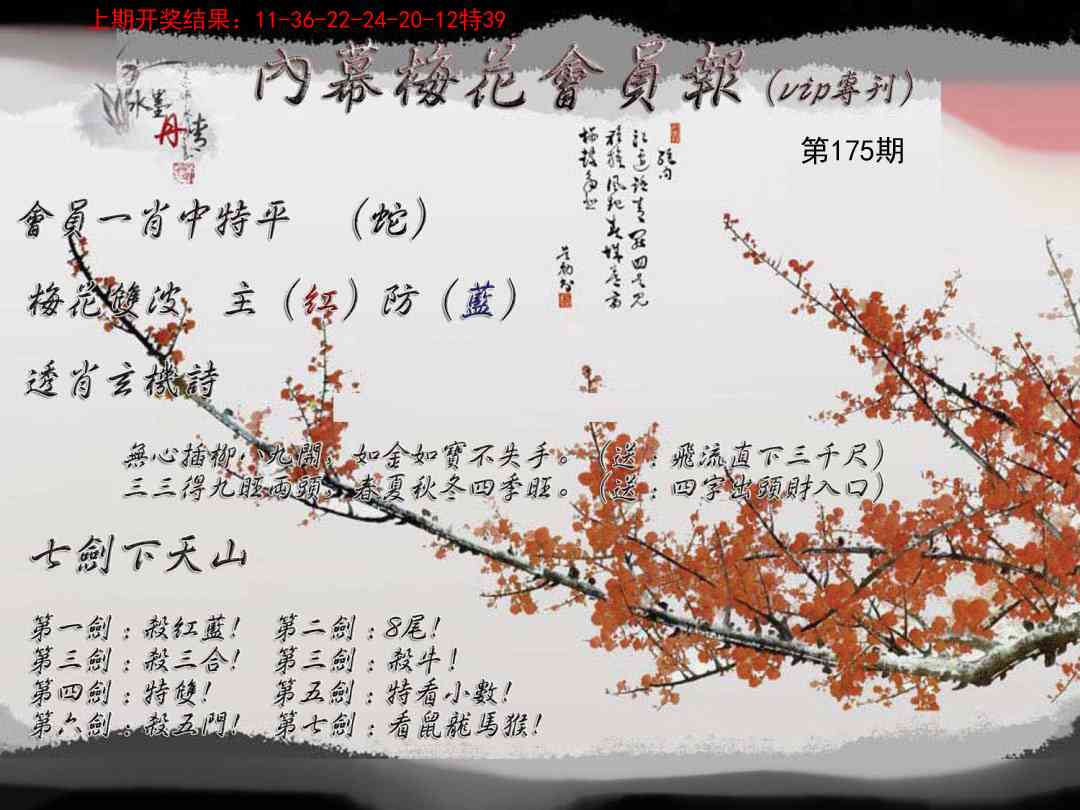 上期开奖结果：11-36-22-24-20-12特39
內幕梅花會員報（vip專刊）
水墨
丹青
第175期
會員一肖中特平　（蛇）
梅花雙波　主（红）防（藍）
透肖玄機詩
無心插柳八九開，如金如寶不失手。（送：飛流直下三千尺）
三三得九旺兩頭，春夏秋冬四季旺。（送：四字出頭財入口）
七劍下天山
第一劍：殺红藍！　第二劍：8尾！
第三劍：殺三合！　第三劍：殺牛！
第四劍：特雙！　第五劍：特看小數！
第六劍：殺五門！　第七劍：看鼠龍馬猴！